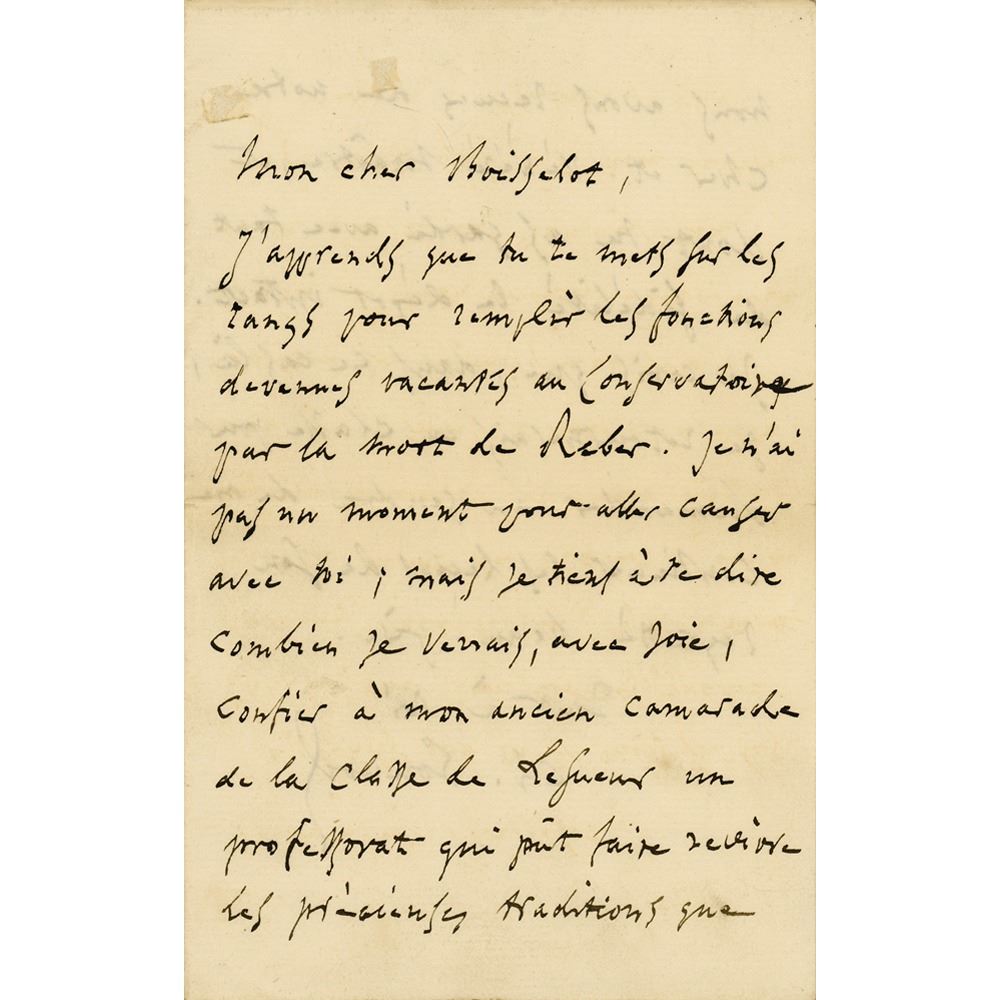 Mon cher Boisselot,
J'apprends que tu te mets sur les
rangs pour remplir les fonctions
devenues vacantes au Conservatoire
par la mort de Reber. Je n'ai
pas un moment pour aller causer
avec toi ; mais je tiens à te dire
combien je verrais, avec joie,
confier à mon ancien camarade
de la classe de Lesueur un
professorat qui pût faire revivre
les précieuses traditions que